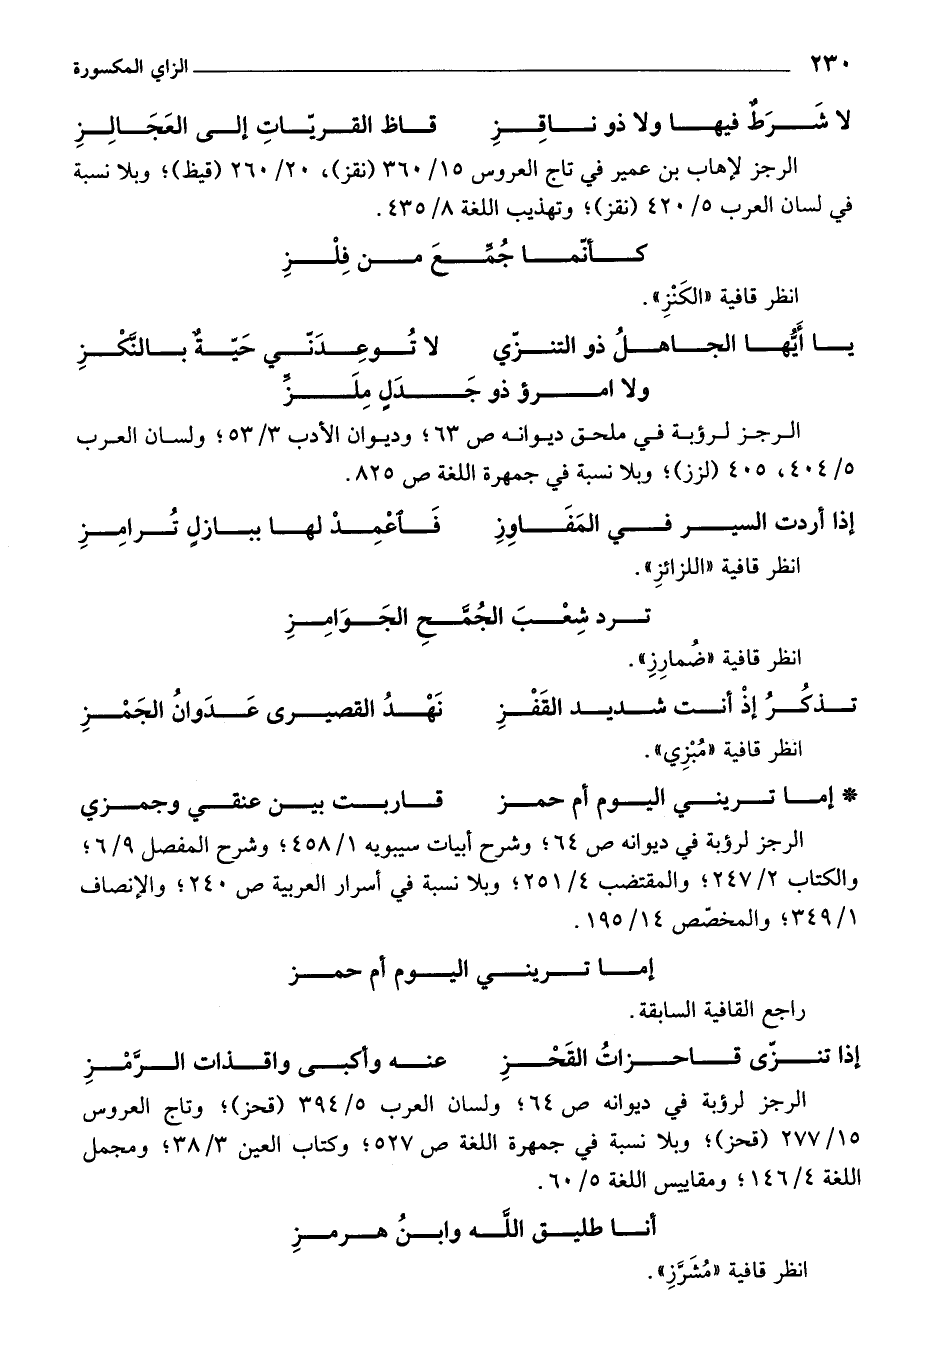 ٢٣٠ الزاي المكسورة
لا شَرَطٌ فيها ولا ذو ناقِزِ قاظ القريّاتِ إلى العَجَالِزِ
الرجز لإهاب بن عمير في تاج العروس ١٥/ ٣٦٠ (نقز)، ٢٠/ ٢٦٠ (قيظ)؛ وبلا نسبة
في لسان العرب ٥/ ٤٢٠ (نقز)؛ وتهذيب اللغة ٨/ ٤٣٥.
كأنّما جُمِّعَ من فِلْزِ
انظر قافية «الكَنْزِ».
يا أيُّها الجاهلُ ذو التنزّي لا تُوعِدَنّي حَيّةٌ بالنَّكْزِ
ولا امرؤ ذو جَدَلٍ مِلَزِّ
الرجز لرؤبة في ملحق ديوانه ص ٦٣؛ وديوان الأدب ٣/ ٥٣؛ ولسان العرب
٥/ ٤٠٤، ٤٠٥ (لزز)؛ وبلا نسبة في جمهرة اللغة ص ٨٢٥.
إذا أردت السير في المَفَاوِزِ فَٱعْمِدْ لها ببازلٍ تُرامِزِ
انظر قافية «اللزائزِ».
ترد شِعْبَ الجُمَّحِ الجَوَامِزِ
انظر قافية «ضُمارِزِ».
تذكُرُ إذْ أنت شديد القَفْزِ نَهْدُ القصيرى عَدَوانُ الجَمْزِ
انظر قافية «مُبْزِي».
* إما تريني اليوم أم حمز قاربت بين عنقي وجمزي
الرجز لرؤبة في ديوانه ص ٦٤؛ وشرح أبيات سيبويه ١/ ٤٥٨؛ وشرح المفصل ٩/ ٦؛
والكتاب ٢/ ٢٤٧؛ والمقتضب ٤/ ٢٥١؛ وبلا نسبة في أسرار العربية ص ٢٤٠؛ والإنصاف
١/ ٣٤٩؛ والمخصّص ١٤/ ١٩٥.
إما تريني اليوم أم حمز
راجع القافية السابقة.
إذا تنزّى قاحزاتُ القَحْزِ عنه وأكبى واقذات الرَّمْزِ
الرجز لرؤبة في ديوانه ص ٦٤؛ ولسان العرب ٥/ ٣٩٤ (قحز)؛ وتاج العروس
١٥/ ٢٧٧ (قحز)؛ وبلا نسبة في جمهرة اللغة ص ٥٢٧؛ وكتاب العين ٣/ ٣٨؛ ومجمل
اللغة ٤/ ١٤٦؛ ومقاييس اللغة ٥/ ٦٠.
أنا طليق اللَّه وابنُ هرمزِ
انظر قافية «مُشَرَّزِ».